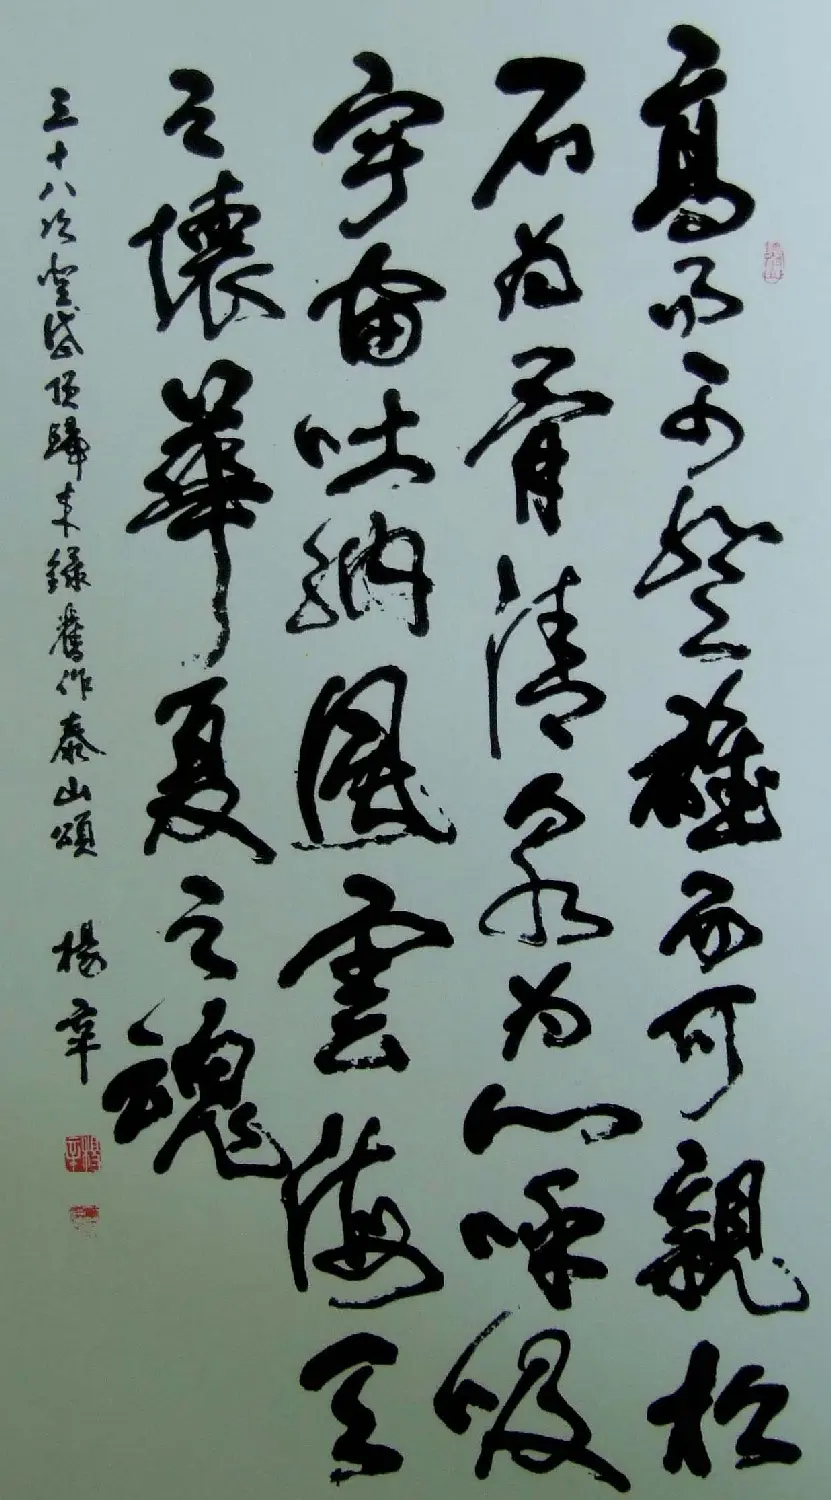 高而可登雄而可親松
石為骨清泉為心呼吸
宇宙吐納風雲海天
之懷華夏之魂
三十八次登岱頂歸来錄舊作泰山頌 楊辛